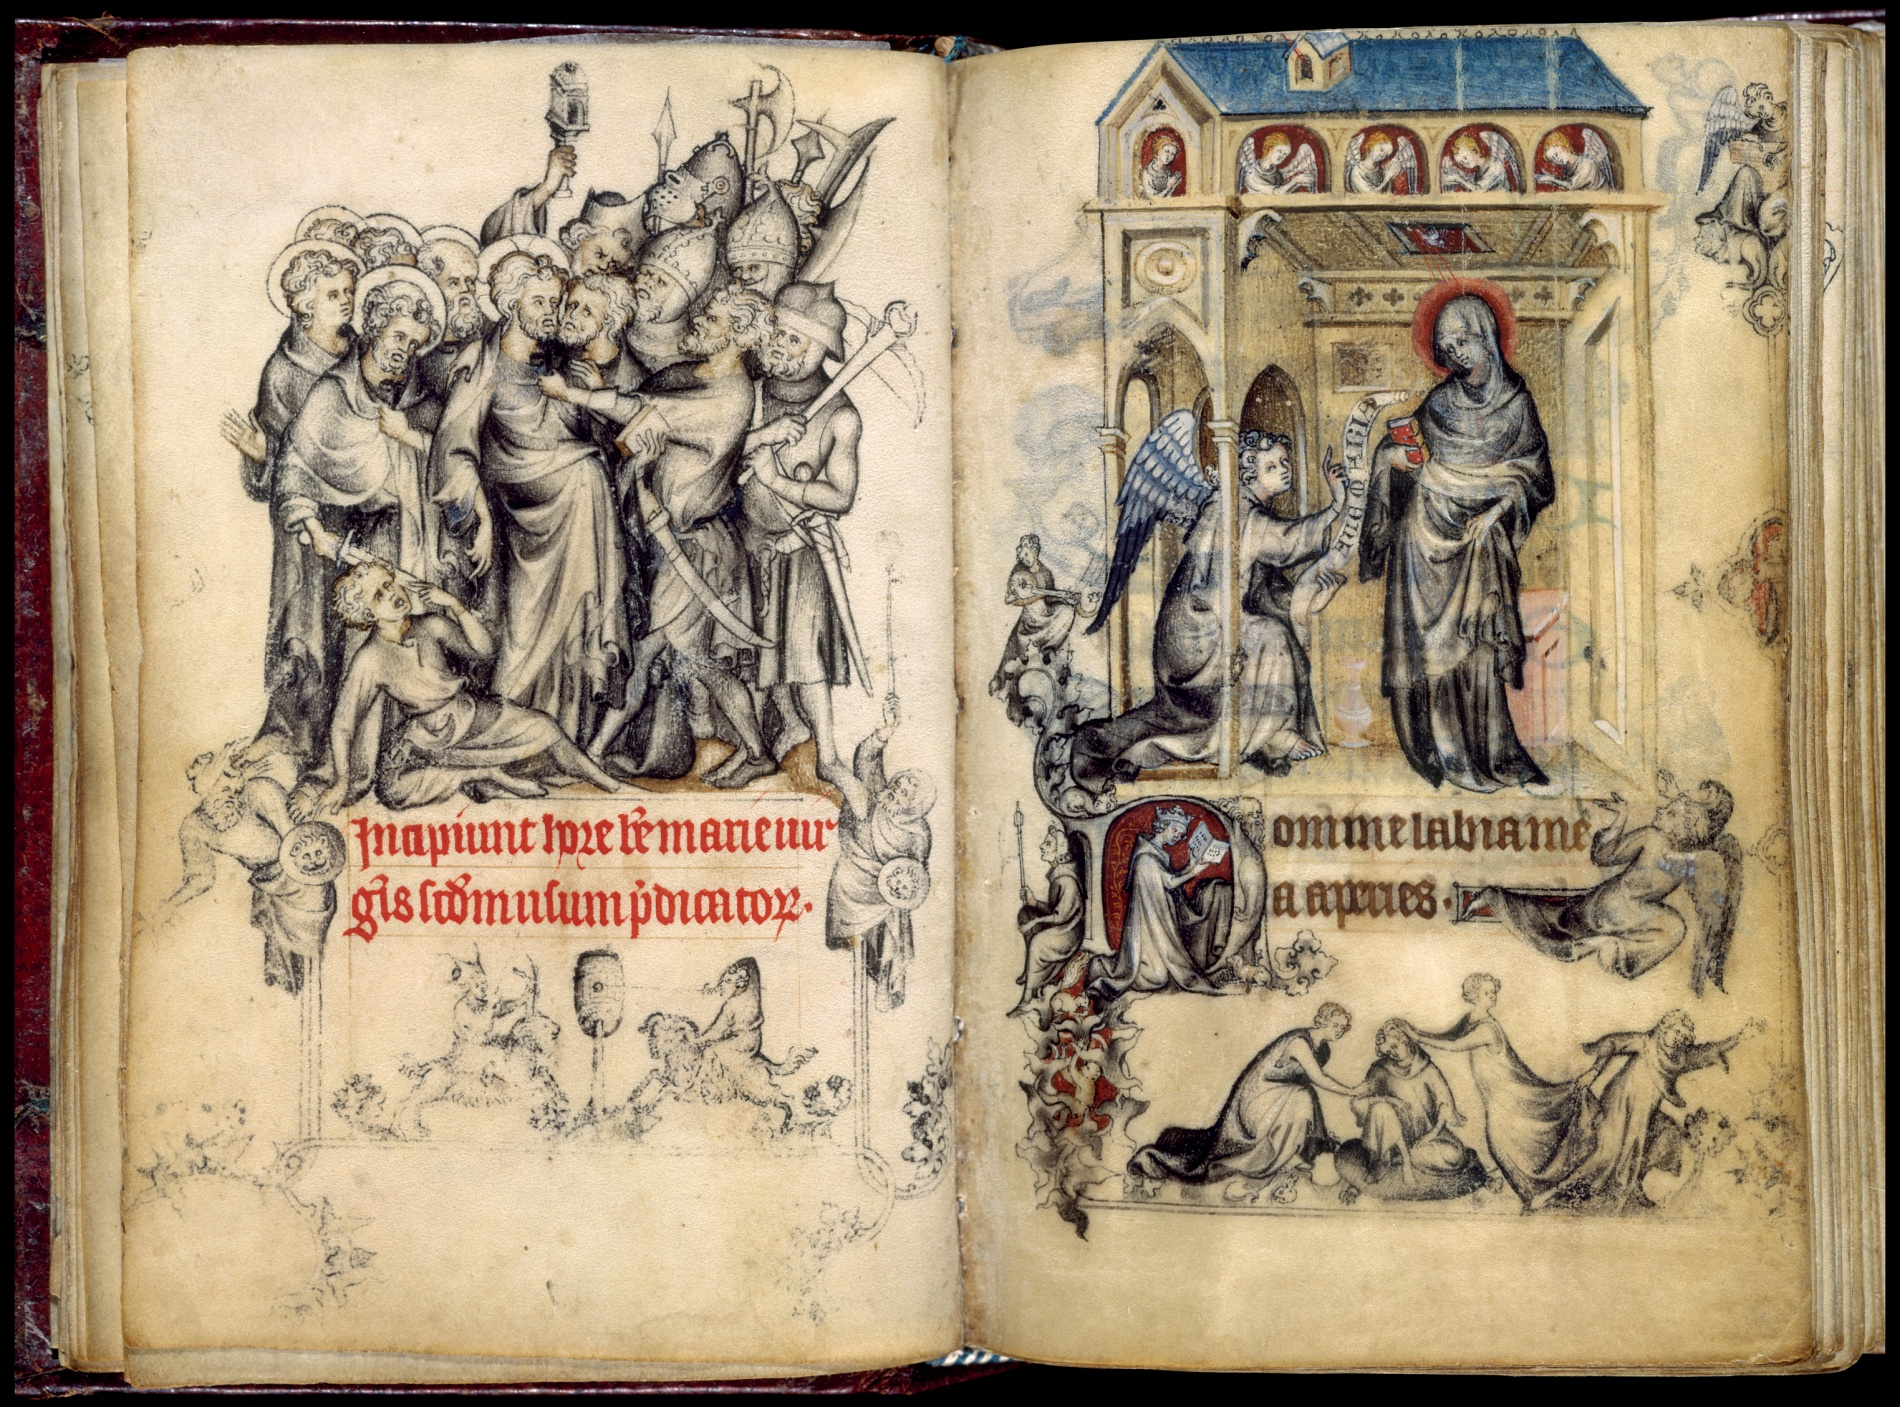 Incipiunt hore be͂ marie uir
gis scd͂m usum p͂dicatoꝝ.
AUE MARIA
Domine labia me
a aperies.